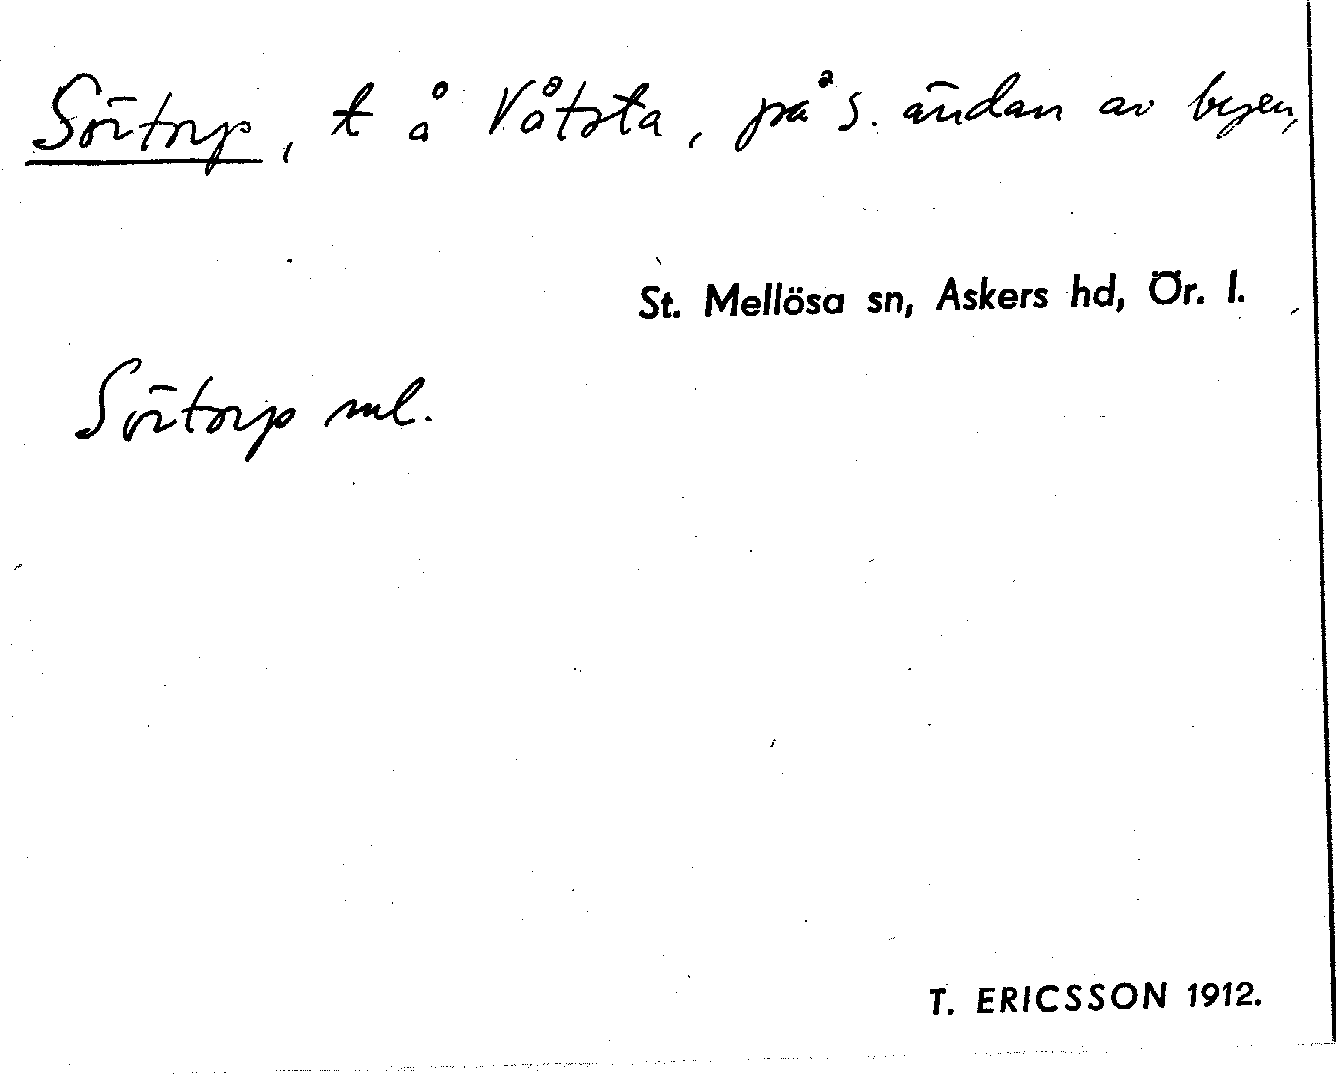 Sörtorp, t å Våtsta, på s. ändan av byen,
St. Mellösa sn, Askers hd, Ör. l.
Sörtorp ml.
T. ERICSSON 1912.